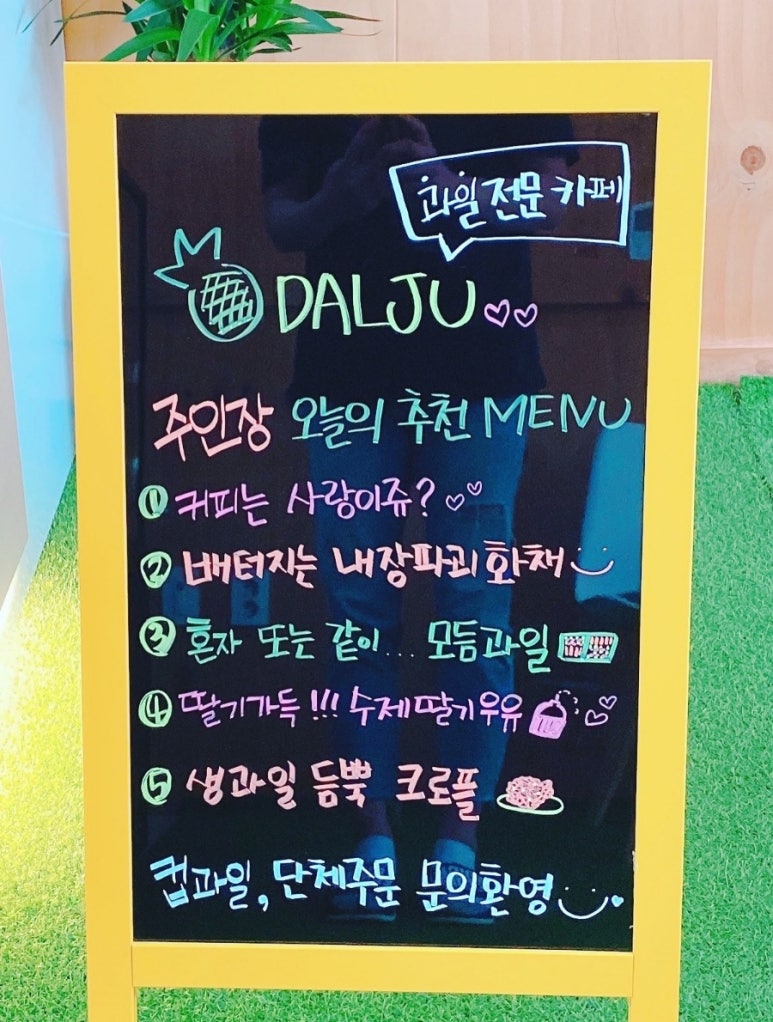 과일 전문 카페
DALJU
주인장 오늘의 추천 MENU
① 커피는 사랑이쥬?
② 배터지는 내장파괴 화채
③ 혼자 또는 같이... 모듬과일
④ 딸기가득!!! 수제딸기우유
⑤ 생과일 듬뿍 크로플
컵과일, 단체주문 문의환영